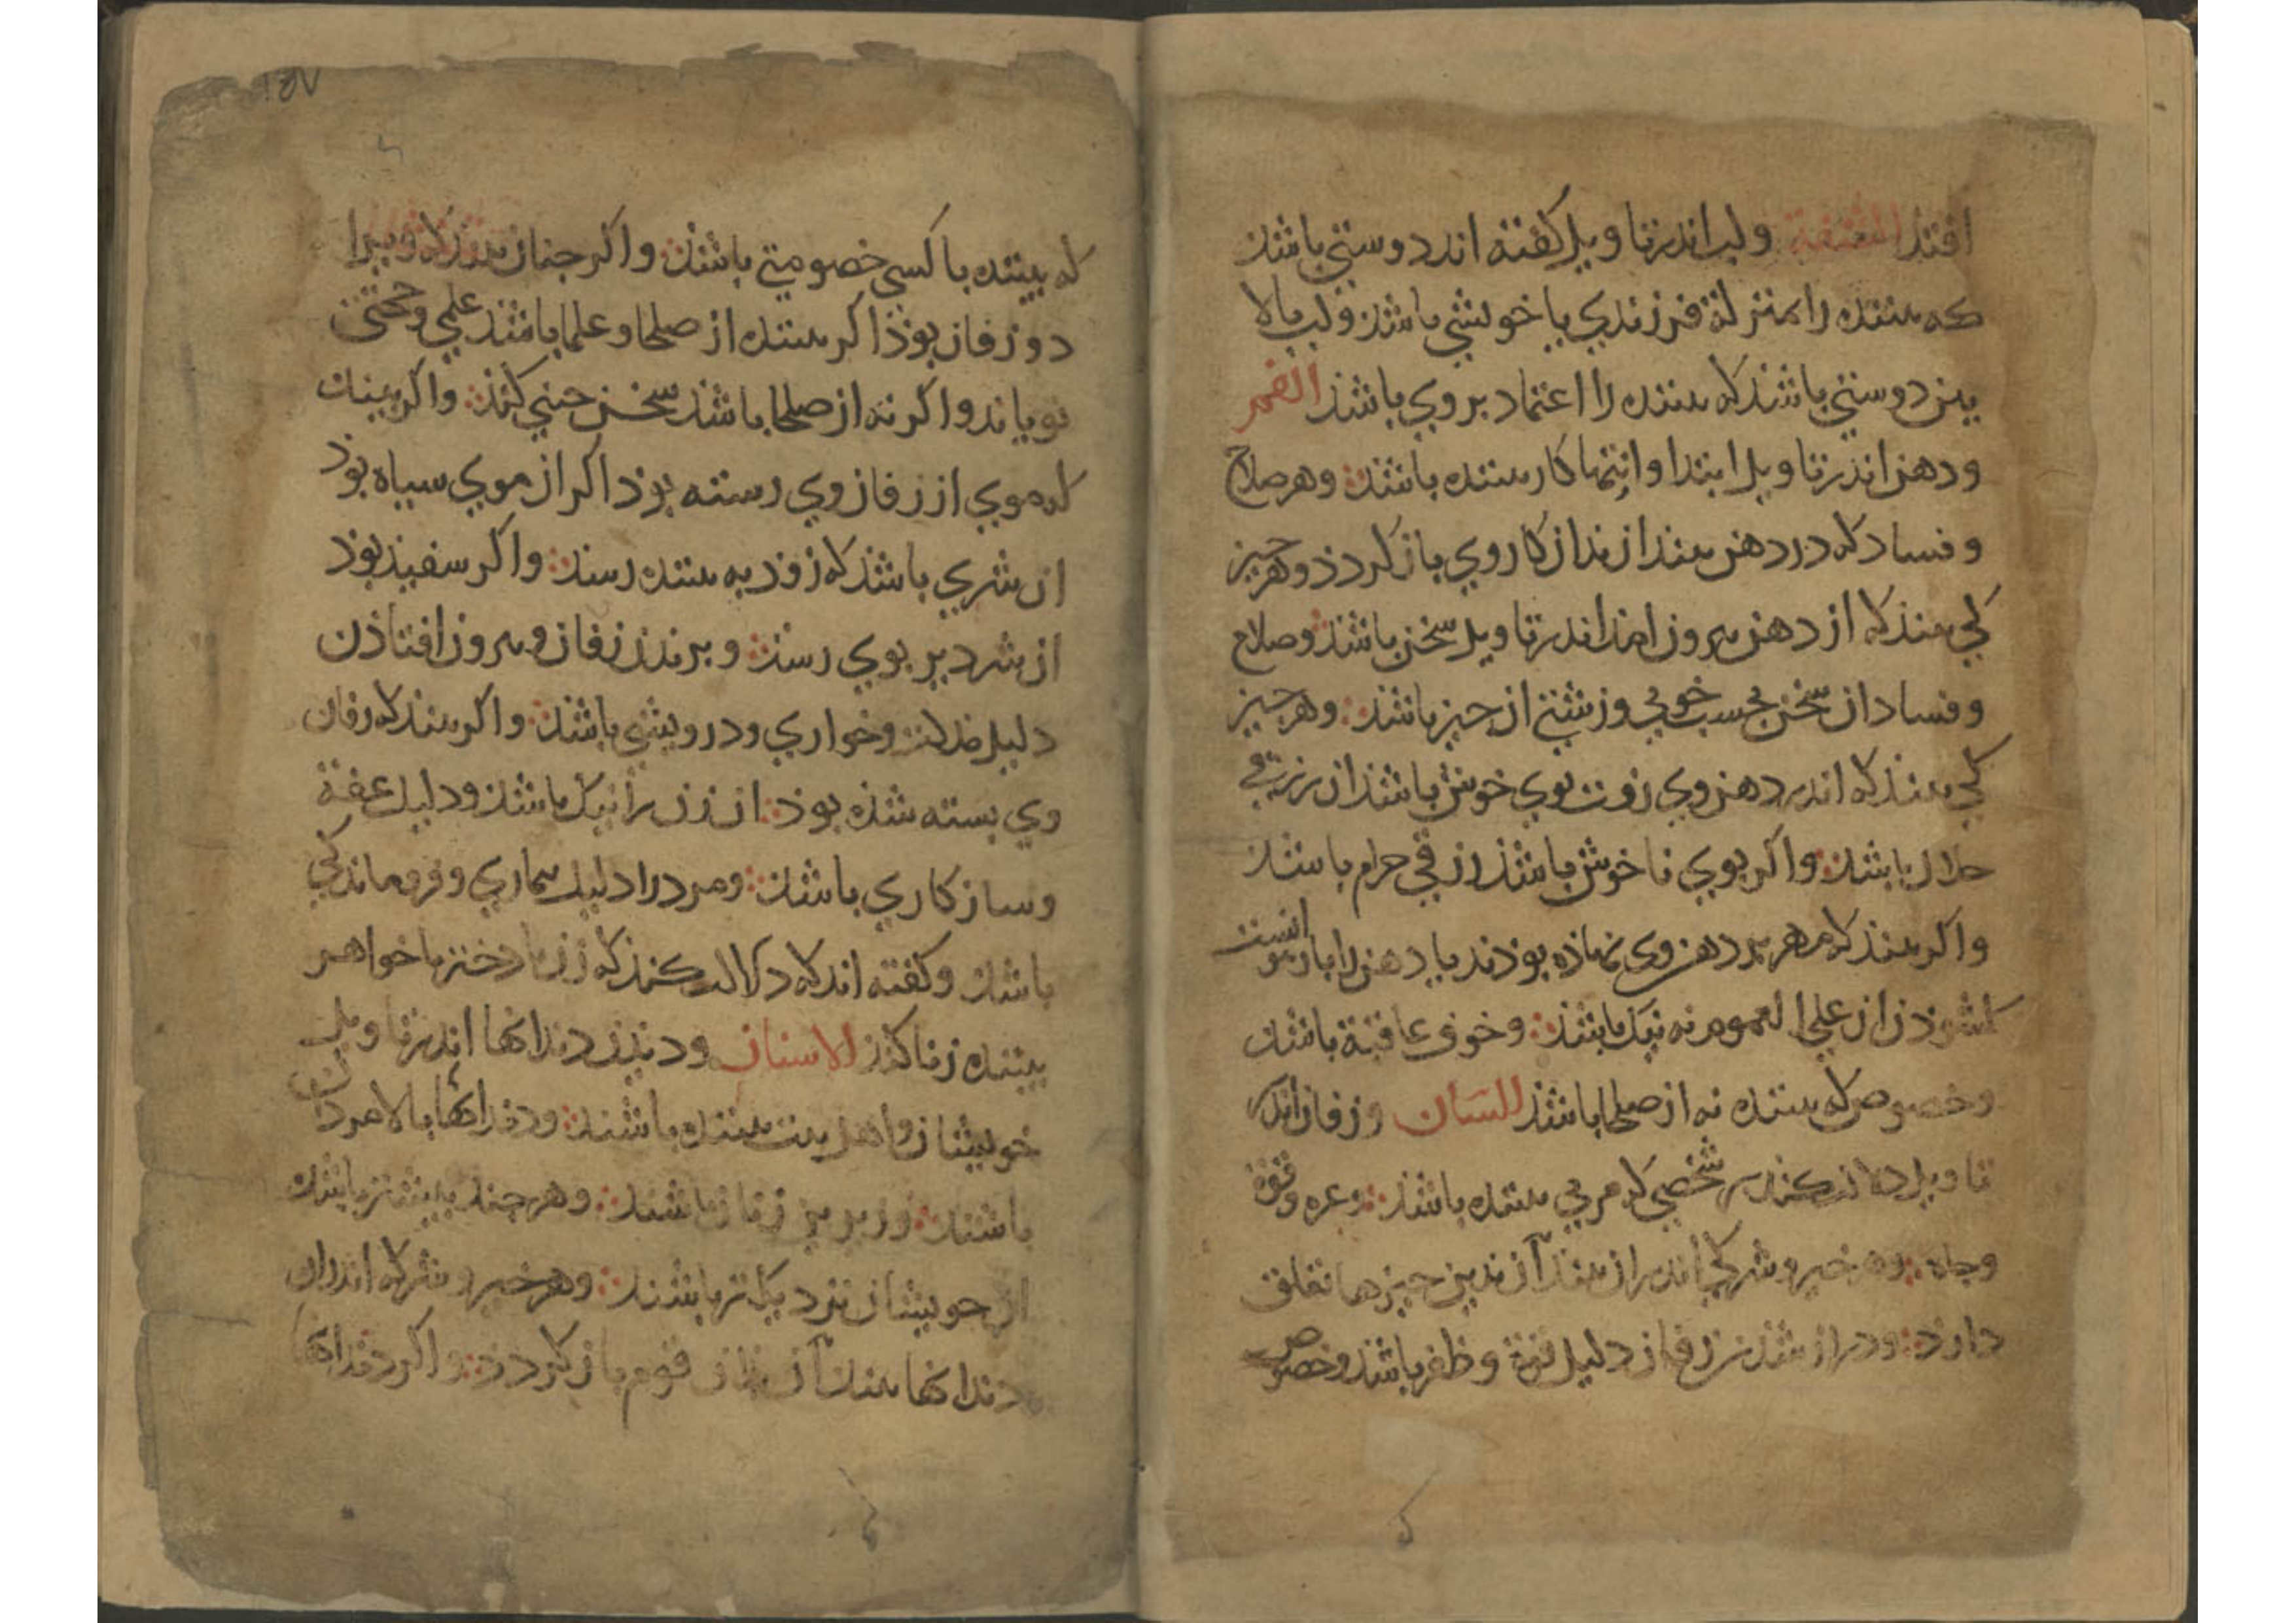 افتد الشفة ولب اندر تاویل گفته اند دوستی باشذ
که بیننده را بمنزلة فرزندي یا خویشي باشذ ولب بالا
بیز دوستي باشذ که بیننده را اعتماد بروي باشذ الفم
ودهن اندر تاویل ابتدا وانتها کار بیننده باشذ وهر صلاح
وفساد که در دهن بیند از نداز کار وي باز کردذ وهر چیز
کي بینذ که از دهن بیرون امذ اندر تاویل سخن باشذ وصلاح
وفساد ان سخن بحسب خوبي وزشتي ان چیز باشذ وهر چیز
کي بینذ که اندر دهن وي رفت بوي خوش باشذ ان رزقي
حلال باشذ واکر بوي ناخوش باشذ رزقي حرام باشذ
واکر بینذ که مهر بر دهن وي نهاذه بوذند یا دهن را باز
کشوذن ان علي العموم نه نیك باشذ وخوف عاقبة باشذ
وخصوص که بیننده نه از صلحا باشذ اللسان وزفان اندر
تاویل دلالت کند بر شخصي که مربي بیننده باشذ وعره وقوة
وجاه وهر خیر وشر کي اندران بینذ آن بدین چیزها تعلق
دارذ ودراز شدن زفان دلیل قوة وظفر باشذ وخصوص
۱۵۷
که بیننده با کسي خصومتي باشذ واکر چنان بیند که ویرا
دو زفان بوذ اکر بیننده از صلحا وعلما باشذ علمي وحجتي
نو یابد واکر نه از صلحا باشذ سخن چیني کند واکر بیند
که موي از زفان وي رسته بوذ اکر از موي سیاه بوذ
ان شري باشذ که زود به بیننده رسد واکر سفیذ بوذ
ان شر دیر بوي رسذ وبریدن زفان وبیرون افتاذن
دلیل مذلت وخواري ودرویشي باشذ واکر بینذ که زفان
وي بسته شذه بوذ ان زن را نیك باشذ ودلیل عفة
وسازکاري باشذ ومرد را دلیل بیماري وفروماندکي
باشذ وکفته اند که دلالت کند که زن یا دختر یا خواهر
بیننده زنا کند الاسنان ودیدن دندانها اندر تاویل
خویشان واهل بیت بیننده باشند ودندانهاء بالا مردان
باشند وزیرین زنان باشند وهر چند بیشتر باشد
ان خویشان نزدیك تر باشند وهر خیر وشر که اندران
دندانها بیند آن بدان قوم باز کردذ واکر دندانها